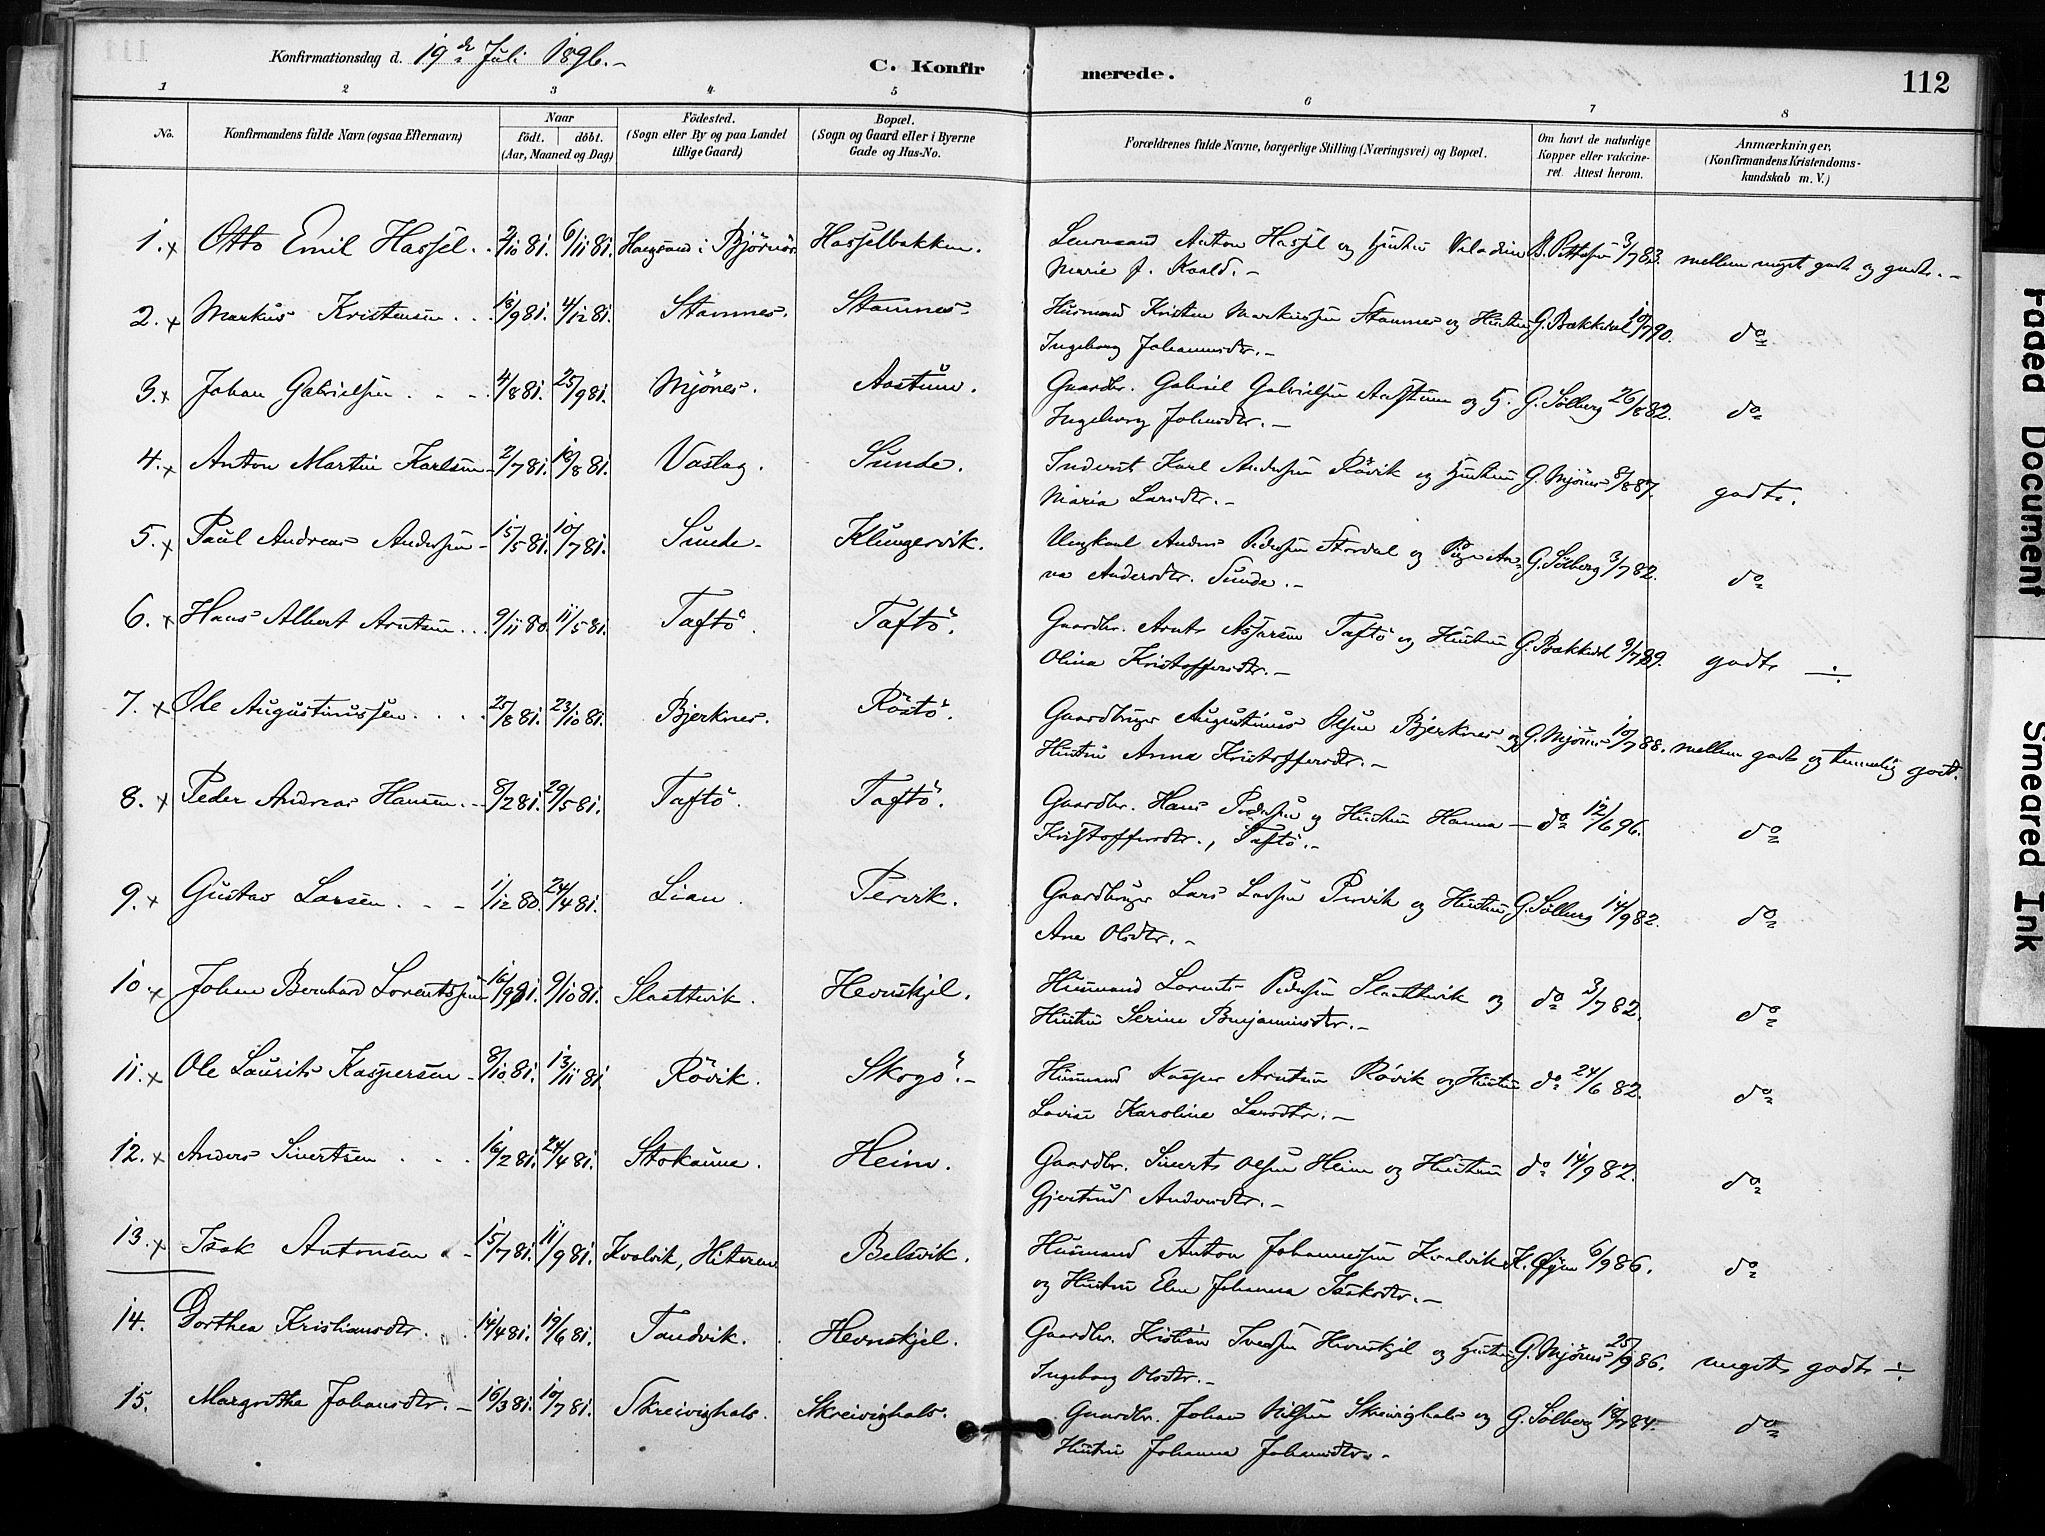 Konfirmationsdag d. 19de Juli 1896.-
C. Konfirmerede.
112
1 2 3 4 5 6 7 8
No. Konfirmandens fulde Navn (ogsaa Efternavn) Naar født. døbt. (Aar, Maaned og Dag) Fødested. (Sogn eller By og paa Landet tillige Gaard) Bopæl. (Sogn og Gaard eller i Byerne Gade og Hus-No. Forældrenes fulde Navne, borgerlige Stilling (Næringsvei) og Bopæl. Om havt de naturlige Kopper eller vakcineret. Attest herom. Anmærkninger. (Konfirmandens Kristendomskundskab m. V.)
1. x Otto Emil Hassel. 2/10 81. 6/11 81. i Bjørnør. Hasselbakken. Anton Hassel og Hustru 3/7 83. mellem meget godt og godt. -
Marie f. Kaald. -
2. x Markus Kristensen . . 18/9 81. 4/12 81. Stamnes. Stamnes. Husmand Kristen Markussen Stamnes og Hustru G. Bækkedal 10/7 90. do
Ingeborg Johannesdtr. -
3. x Johan Gabrielsen . - - 4/8 81. 25/9 81. Mjønes. Aastum. Gaardbr. Gabriel Gabrielsen Aastum og H. G. Sølberg 26/8 82. do
Ingeborg Johnsdtr. -
4. x Anton Martin Karlsen - 2/7 81. 18/8 81. Vaslag. Sunde. Inderst Karl Andersen Røvik og Hustru G. Mjønes 8/8 87. godt.
Maria Larsdtr. -
5. x Paul Andreas Andersen - 15/5 81. 10/7 81. Sunde. Klungervik. Ungkarl Anders Pedersen Stordal og Pige An- G. Sølberg 3/7 82. do
na Andersdtr. Sunde. -
6. x Hans Albert Arntsen . . 9/11 80. 11/5 81. Taftø. Taftø. Gaardbr. Arnt Assersen Taftø og Hustru G. Bækkedal 9/7 89. godt ÷
Olina Kristoffersdtr. -
7. x Ole Augustinussen . . . 25/8 81. 23/10 81. Bjerknes. Røstø. Gaardbruger Augustinus Olsen Bjerknes og G. Mjønes 10/7 88. mellem godt og temmelig godt.
Hustru Anna Kristoffersdtr. -
8. x Peder Andreas Hansen. - 8/2 81. 29/5 81. Taftø. Taftø. Gaardbr. Hans Pedersen og Hustru Hanna - do 12/6 96. do
Kristoffersdtr., Taftø. -
9. x Gustav Larsen . - - 1/12 80. 24/4 81. Lian. Pervik. Gaardbruger Lars Larsen Pervik og Hustru G. Sølberg 14/9 82. do
Ane Olsdtr. -
10. x Johan Bernhard Lorentssen 16/9 81. 9/10 81. Slaattvik. Hevnskjel. Husmand Lorents Pedersen Slaattvik og do 3/7 82. do
Hustru Serine Benjaminsdtr. -
11. x Ole Laurits Kaspersen - 8/10 81. 13/11 81. Røvik. Skogø. - Husmand Kasper Arntsen Røvik og Hustru do 24/6 82. do
Lovise Karoline Larsdtr. -
12. x Anders Sivertsen . . . 16/2 81. 24/4 81. Stokaune. Heim. Gaardbr. Sivert Olsen Heim og Hustru do 14/9 82. do
Gjertrud Andersdtr. -
13. x Isak Antonsen . - 15/7 81. 11/9 81. Kvalvik, Hiteren Belsvik. Husmand Anton Johannessen Kvalvik K. Øyen 6/9 86. do
og Hustru Elen Johanna Isaksdtr. -
14. Dorthea Kristiansdtr. . 14/4 81. 19/6 81. Tandvik. Hevnskjel. Gaardbr. Kristian Hevnskjel og Hustru G. Mjønes 25/9 86. meget godt ÷
Ingeborg Olsdtr. -
15. Margrethe Johansdtr. - 16/3 81. 10/7 81. Skreivighals. Skreivighals. Gaardbr. Johan Nilsen Skreivighals og G. Sølberg 18/7 84. do
Hustru Johanna Johansdtr. -
Faded Document
Smeared Ink